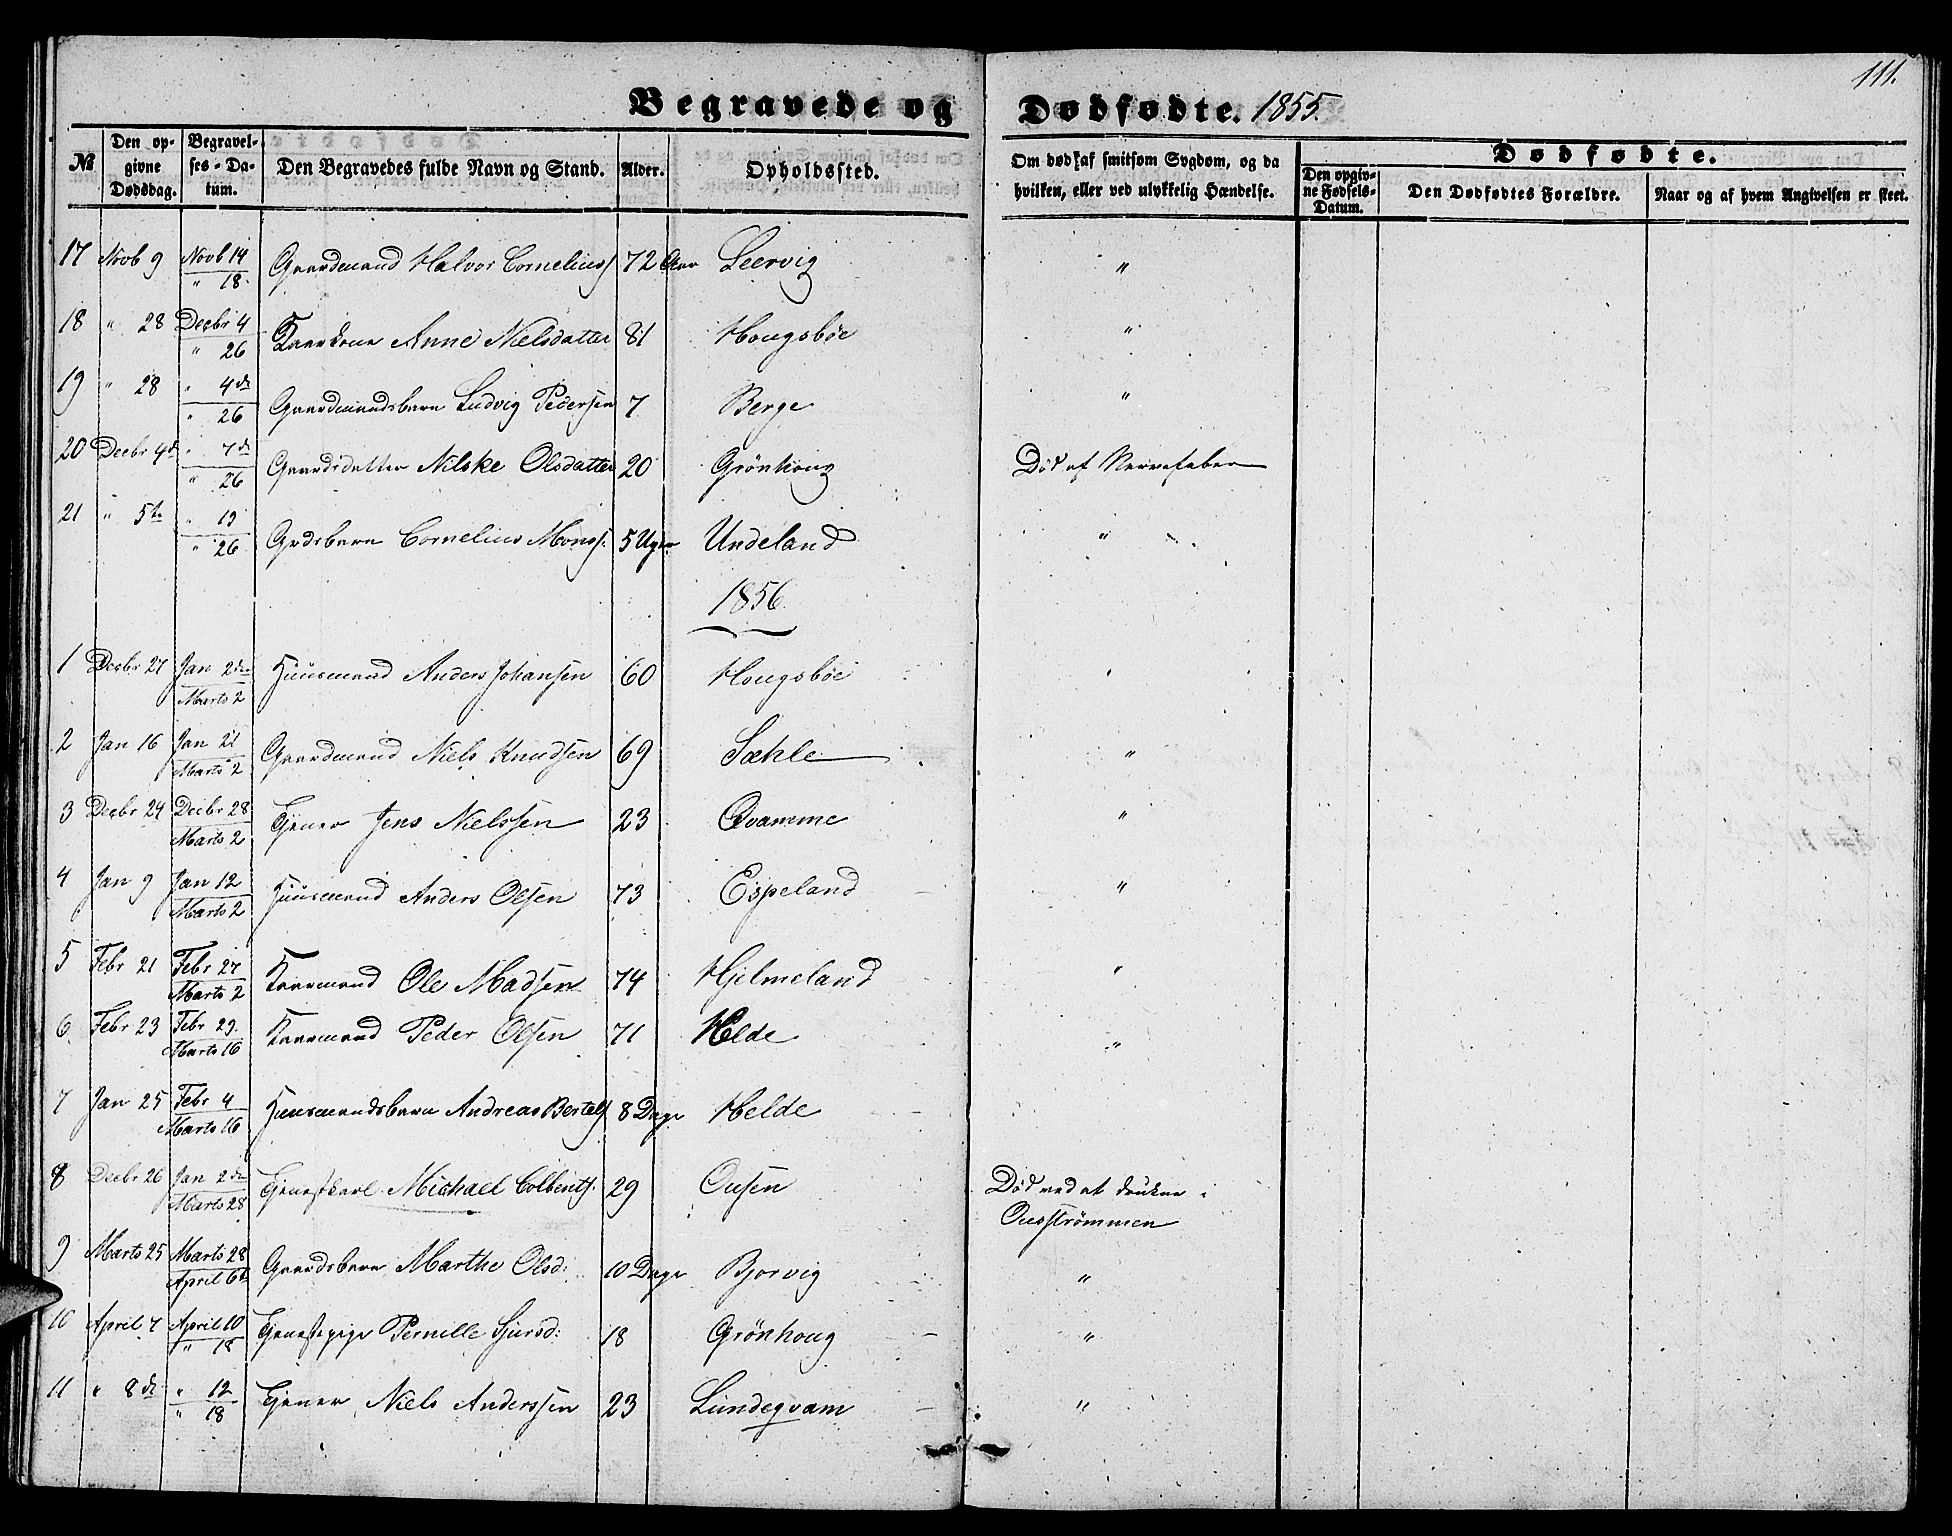 111.
Begravede og Dødfødte. 1855.
№ Den opgivne Dødsdag. Begravelses-Datum. Den Begravedes fulde Navn og Stand. Alder. Opholdssted. Om død af smitsom Sygdom, og da hvilken, eller ved ulykkelig Hændelse. Dødfødte. Den opgivne Fødsels-Datum. Den Dødfødtes Forældre. Naar og af hvem Angivelsen er skeet.
17 Novb 9 Novb 14 / " 18 Gaardmand Halvor Corneliuss 72 Aar Leervig "
18 " 28 Decbr 4 / " 26 Kaarkone Anne Nielsdatter 81 Hougsböe "
19 " 28 " 4de / " 26 Gaardmandsbarn Ludvig Pedersen 7 Berge "
20 Decbr 4de " 7de / " 26 Gaardsdatter Nilske Olsdatter 20 Grönhoug Död af Nervefeber
21 " 5te " 19 / " 26 Grdsbarn Cornelius Monss. 5 Uger Undeland "
1856.
1 Decbr 27 Jan 2den / Marts 2 Huusmand Anders Johansen 60 Hougsböe "
2 Jan 16 Jan 21 / Marts 2 Gaardmand Niels Knudsen 69 Sæhle "
3 Decbr 24 Decbr 28 / Marts 2 Tjener Jens Nielssen 23 Qvamme "
4 Jan 9 Jan 12 / Marts 2 Huusmand Anders Olsen 73 Espeland "
5 Febr 21 Febr 27 / Marts 2 Kaarmand Ole Madsen 74 Hjelmeland "
6 Febr 23 Febr 29. / Marts 16 Kaarmand Peder Olsen 71 Helde "
7 Jan 25 Febr 4 / Marts 16 Huusmandsbarn Andreas Bertels 8 Dage Helde
8 Decbr 26 Jan 2den / Marts 28 Tjenestkarl Michael Colbents. 29 Ousen Död ved at drukne i
Ousströmmen
9 Marts 25 Marts 28 / April 6te Gaardsbarn Marthe Olsd: 10 Dage Bjorvig "
10 April 7 April 10 / " 18 Tjenestepige Pernille Sjursd: 18 Grönhoug "
11 " 8de " 12 / " 18 Tjener Niels Anderssen 23 Lundeqvam "